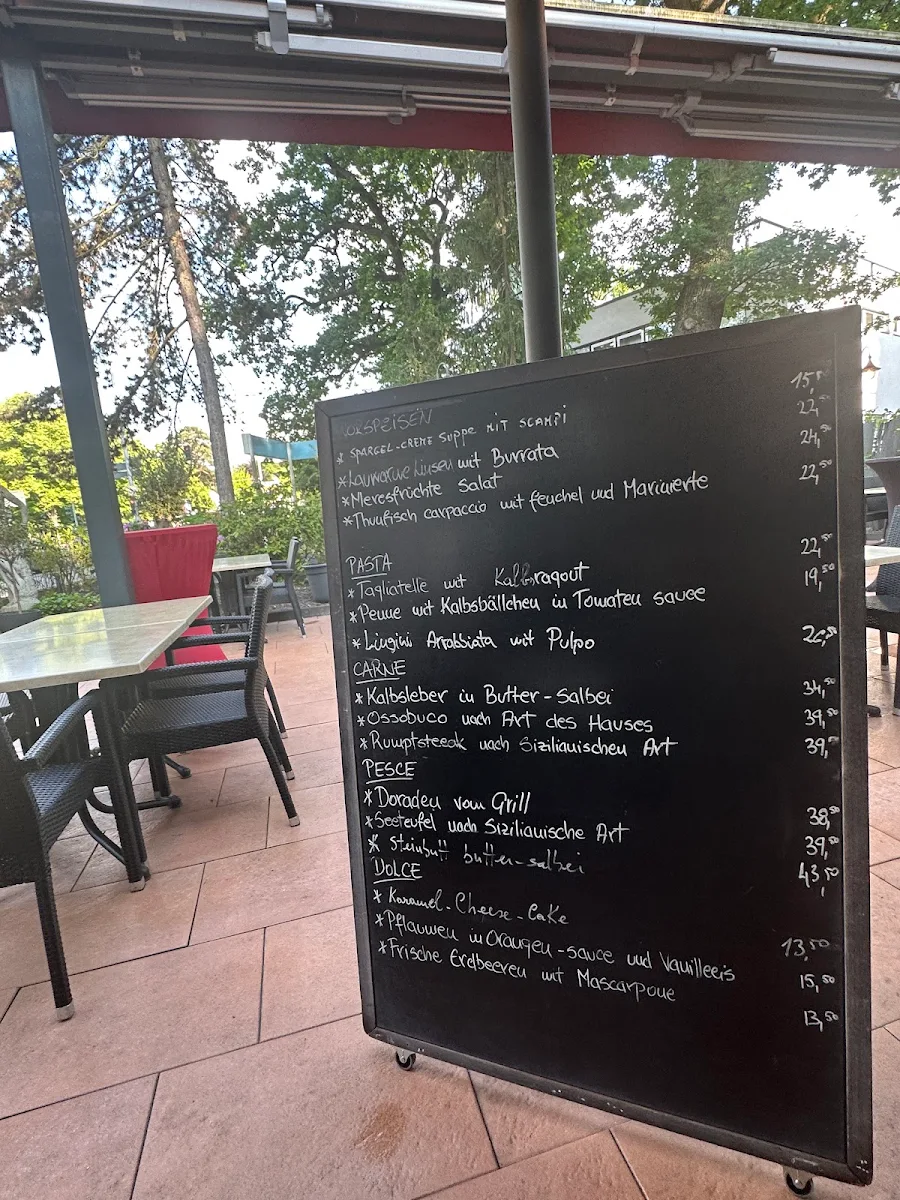 VORSPEISEN
* SPARGEL-CREME SUPPE MIT SCAMPI 15,⁵⁰
*Lauwarme Linsen mit Burrata 22,⁵⁰
*Meresfrüchte Salat 24,⁵⁰
*Thunfisch carpaccio mit feuchel und Marinierte 22,⁵⁰
PASTA
*Tagliatelle mit Kalbsragout 22,⁵⁰
*Penne mit Kalbsbällchen in Tomaten sauce 19,⁵⁰
*Lingini Arrabbiata mit Pulpo 26,⁵⁰
CARNE
*Kalbsleber in Butter-Salbei 34,⁵⁰
*Ossobuco nach Art des Hauses 39,⁵⁰
*Rumptsteeak nach Sizilianischen Art 39,⁵⁰
PESCE
*Doraden vom Grill 38,⁵⁰
*Seeteufel nach Sizilianische Art 39,⁵⁰
* Steinbutt butter-salbei 43,⁵⁰
DOLCE
* Karamel-Cheese-Cake 13,⁵⁰
*Pflaumen in Orangen-sauce und Vanilleeis 15,⁵⁰
*Frische Erdbeeren mit Mascarpone 13,⁵⁰